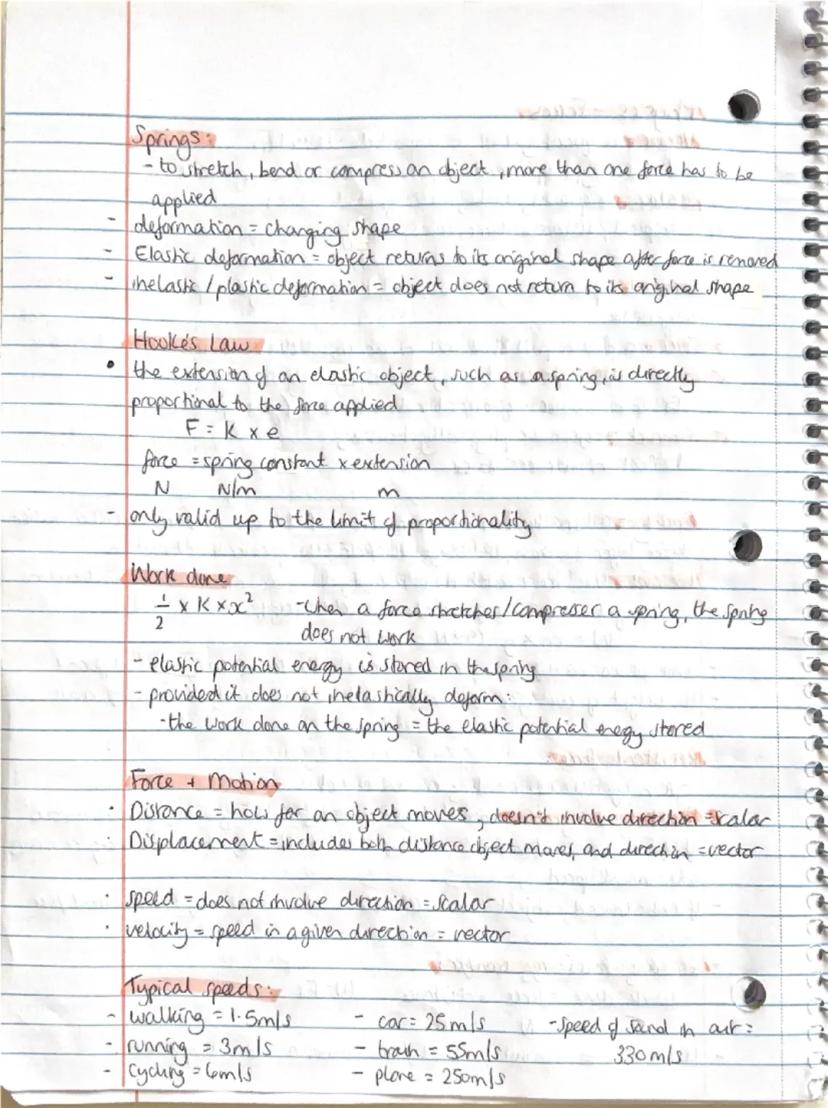 Springs:
- to stretch, bend or compress an object, more than one force has to be
applied
- deformation = changing shape
- Elastic deformation = object returns to its original shape after force is removed
- inelastic / plastic deformation = object does not return to its original shape
Hooke's Law
• the extension of an elastic object, such as a spring, is directly
proportional to the force applied
F = K x e
force = spring constant x extension
N N/m m
- only valid up to the limit of proportionality
Work done
1/2 x K x x² - When a force stretches/compresser a spring, the spring
does not work
- elastic potential energy is stored in the spring
- provided it does not inelastically deform:
- the work done on the spring = the elastic potential energy stored
Force + Motion
· Distance = how far an object moves, doesn't involve direction = scalar
· Displacement = includes both distance object moves, and direction = vector
· speed = does not involve direction = scalar
· velocity = speed in a given direction = vector
Typical speeds:
- walking = 1.5m/s - car = 25m/s - speed of sound in air =
- running = 3m/s - train = 55m/s 330m/s
- cycling = 6m/s - plane = 250m/s